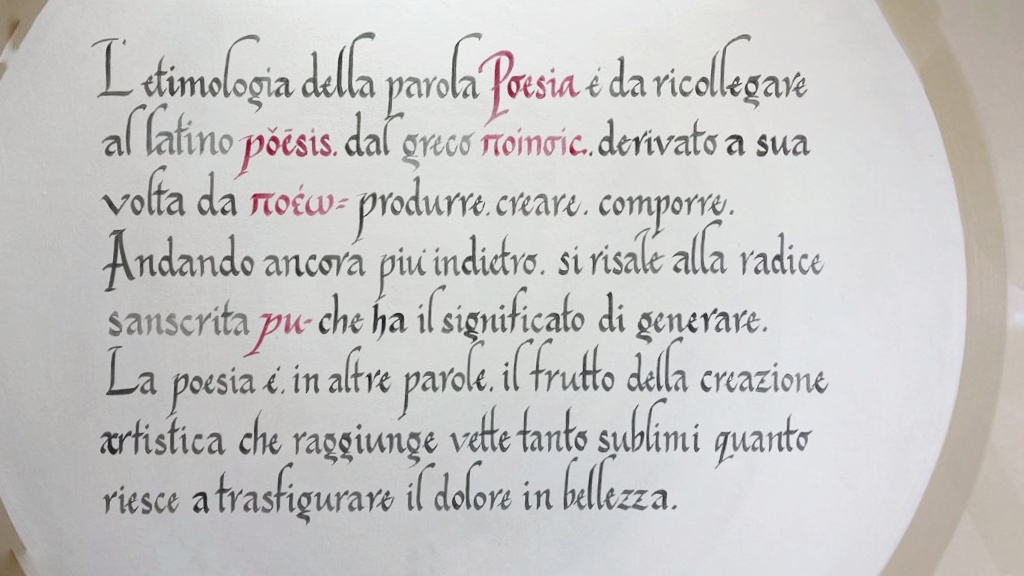 L'etimologia della parola Poesia é da ricollegare
al latino pŏēsis. dal greco ποιησις. derivato a sua
volta da ποέω- produrre. creare. comporre.
Andando ancora piú indietro. si risale alla radice
sanscrita pu- che ha il significato di generare.
La poesia é. in altre parole. il frutto della creazione
artistica che raggiunge vette tanto sublimi quanto
riesce a trasfigurare il dolore in bellezza.